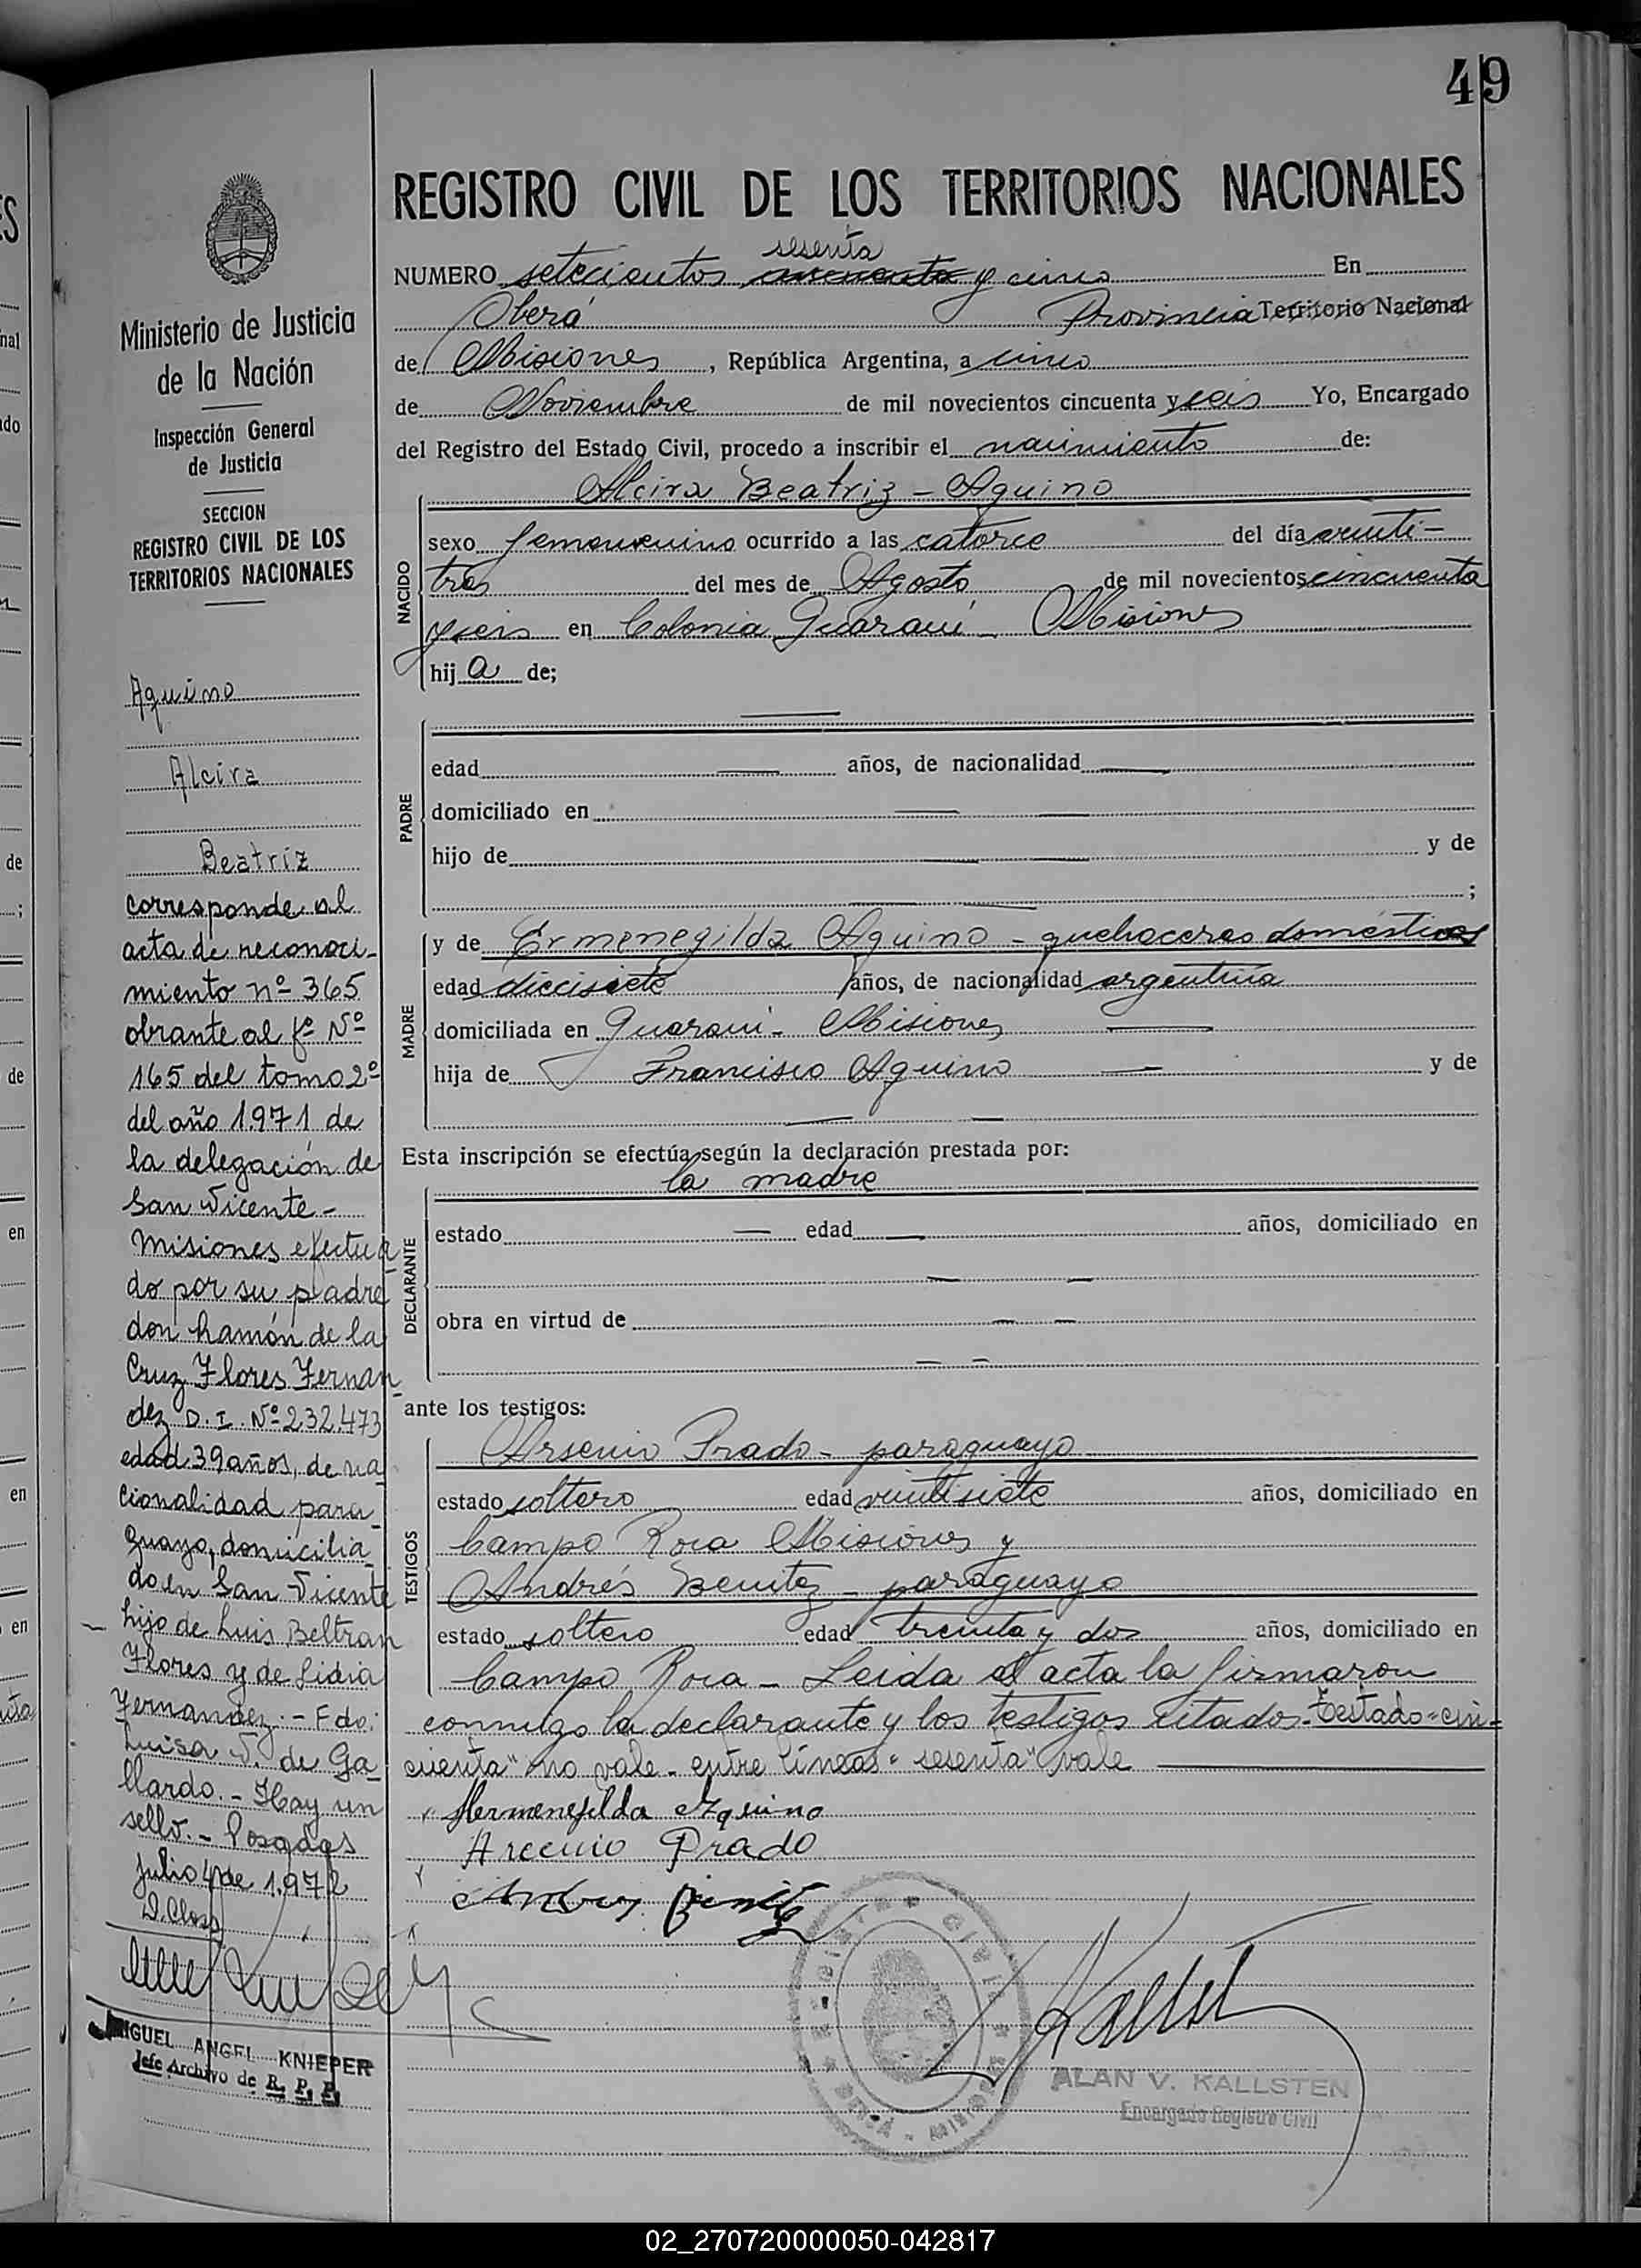 49
REGISTRO CIVIL DE LOS TERRITORIOS NACIONALES
sesenta
NUMERO setecientos cincuenta y cinco En
Oberá Provincia Territorio Nacional
de Misiones, República Argentina, a cinco
de Noviembre de mil novecientos cincuenta y seis Yo, Encargado
del Registro del Estado Civil, procedo a inscribir el nacimiento de:
Alcira Beatriz - Aquino
NACIDO
sexo femenino ocurrido a las catorce del día veinti-
tres del mes de Agosto de mil novecientos cincuenta
y seis en Colonia Guaraní - Misiones
hija de;
PADRE
edad años, de nacionalidad
domiciliado en
hijo de y de
;
MADRE
y de Ermenegilda Aquino - quehaceres domésticos
edad diecisiete años, de nacionalidad argentina
domiciliada en Guaraní - Misiones
hija de Francisco Aquino y de
Esta inscripción se efectúa según la declaración prestada por:
la madre
DECLARANTE
estado edad años, domiciliado en
obra en virtud de
ante los testigos:
TESTIGOS
Arsenio Prado - paraguayo
estado soltero edad veintisiete años, domiciliado en
Campo Roca Misiones y
Andrés Benitez - paraguayo
estado soltero edad treinta y dos años, domiciliado en
Campo Roca - Leida el acta la firmaron
conmigo la declarante y los testigos citados - Testado "cin-
cuenta" no vale - entre líneas "sesenta" vale
Hermenegilda Aquino
Arcenio Prado
REGISTRO CIVIL
ALAN V. KALLSTEN
Encargado Registro Civil
Ministerio de Justicia
de la Nación
Inspección General
de Justicia
SECCION
REGISTRO CIVIL DE LOS
TERRITORIOS NACIONALES
Aquino
Alcira
Beatriz
corresponde al
acta de reconoci-
miento nº 365
obrante al fº Nº
165 del tomo 2º
del año 1971 de
la delegación de
San Vicente -
Misiones efectua-
do por su padre
don Ramón de la
Cruz Flores Fernan-
dez D. I. Nº 232.473
edad 39 años, de na-
cionalidad para-
guayo, domicilia-
do en San Vicente
hijo de Luis Beltran
Flores y de Lidia
Fernandez. - Fdo:
Luisa V. de Ga-
llardo. - Hay un
sello. - Posadas
Julio 4 de 1.972
D. Closs
MIGUEL ANGEL KNIEPER
Jefe Archivo de R. P. P.
02_270720000050-042817